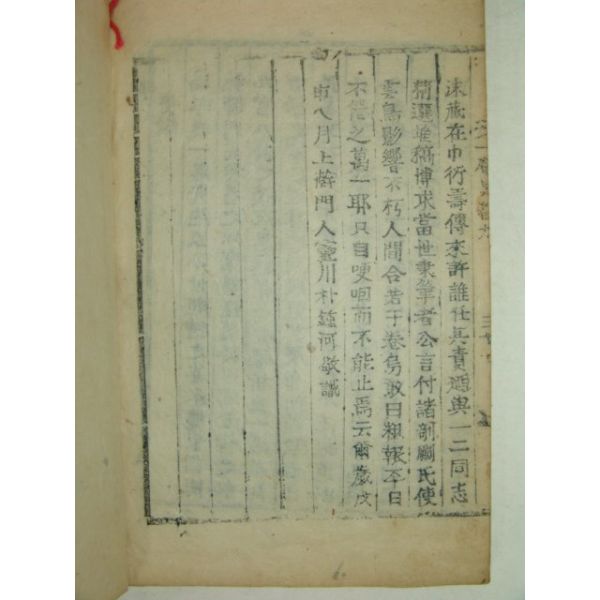 沫藏在巾衍壽傳來許誰任其責迺與一二同志
精選堆稿博求當世秉筆者公言付諸剞劂氏使
雲鳥影響不朽人間合若干卷烏敢曰粗報平日
不答之萬一耶只自哽咽而不能止焉云爾歲戊
申八月上澣門人靈川朴 河敬識